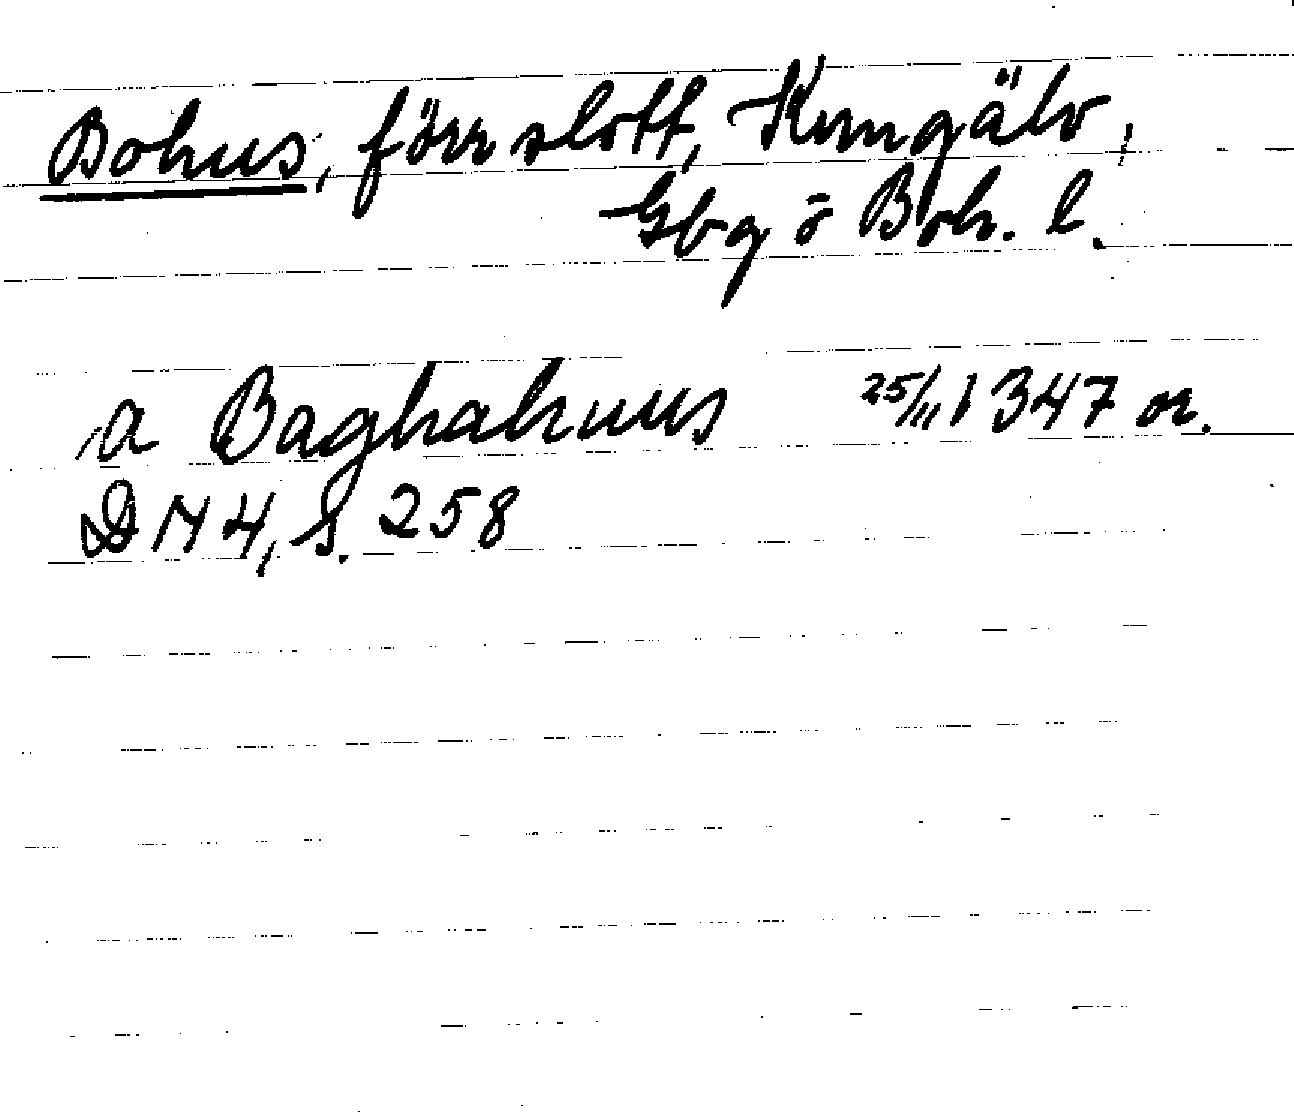 Bohus, förr slott, Kungälv,
Gbg ö Boh. l.
a Baghahuus 25/11 1347 or.
DN 4, s. 258